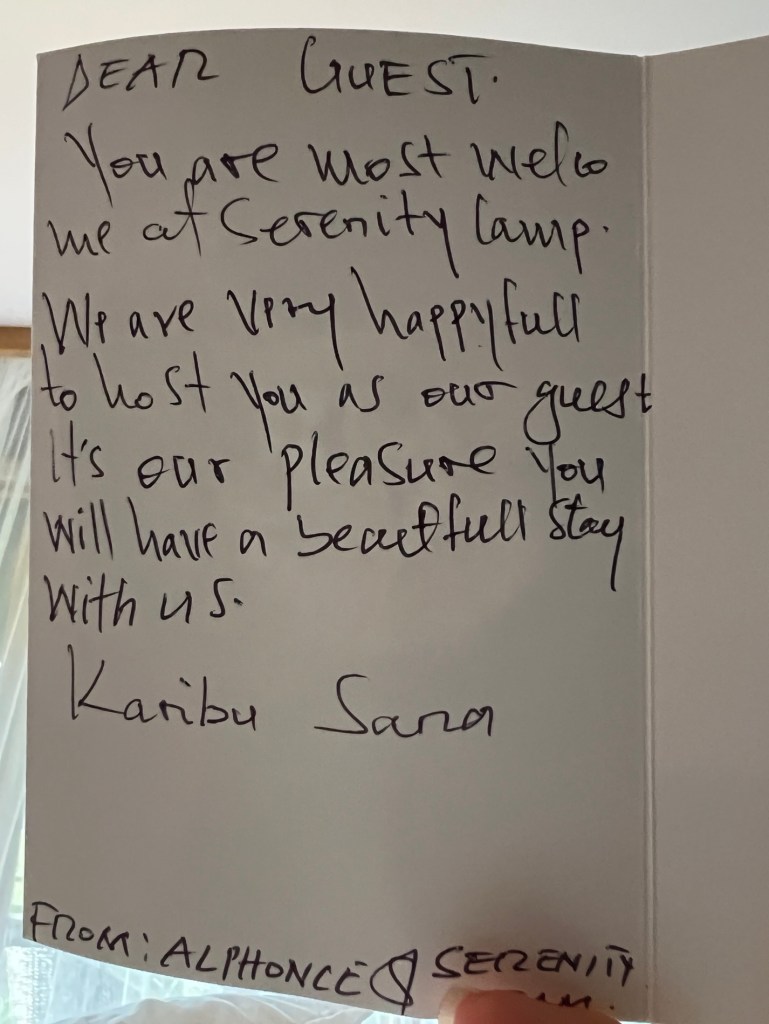 DEAR GUEST.
You are most welco
me at Serenity Camp.
We are very happyfull
to host you as our guest
It's our pleasure you
will have a beautfull stay
with us.
Karibu Sana
FROM: ALPHONCE & SERENITY